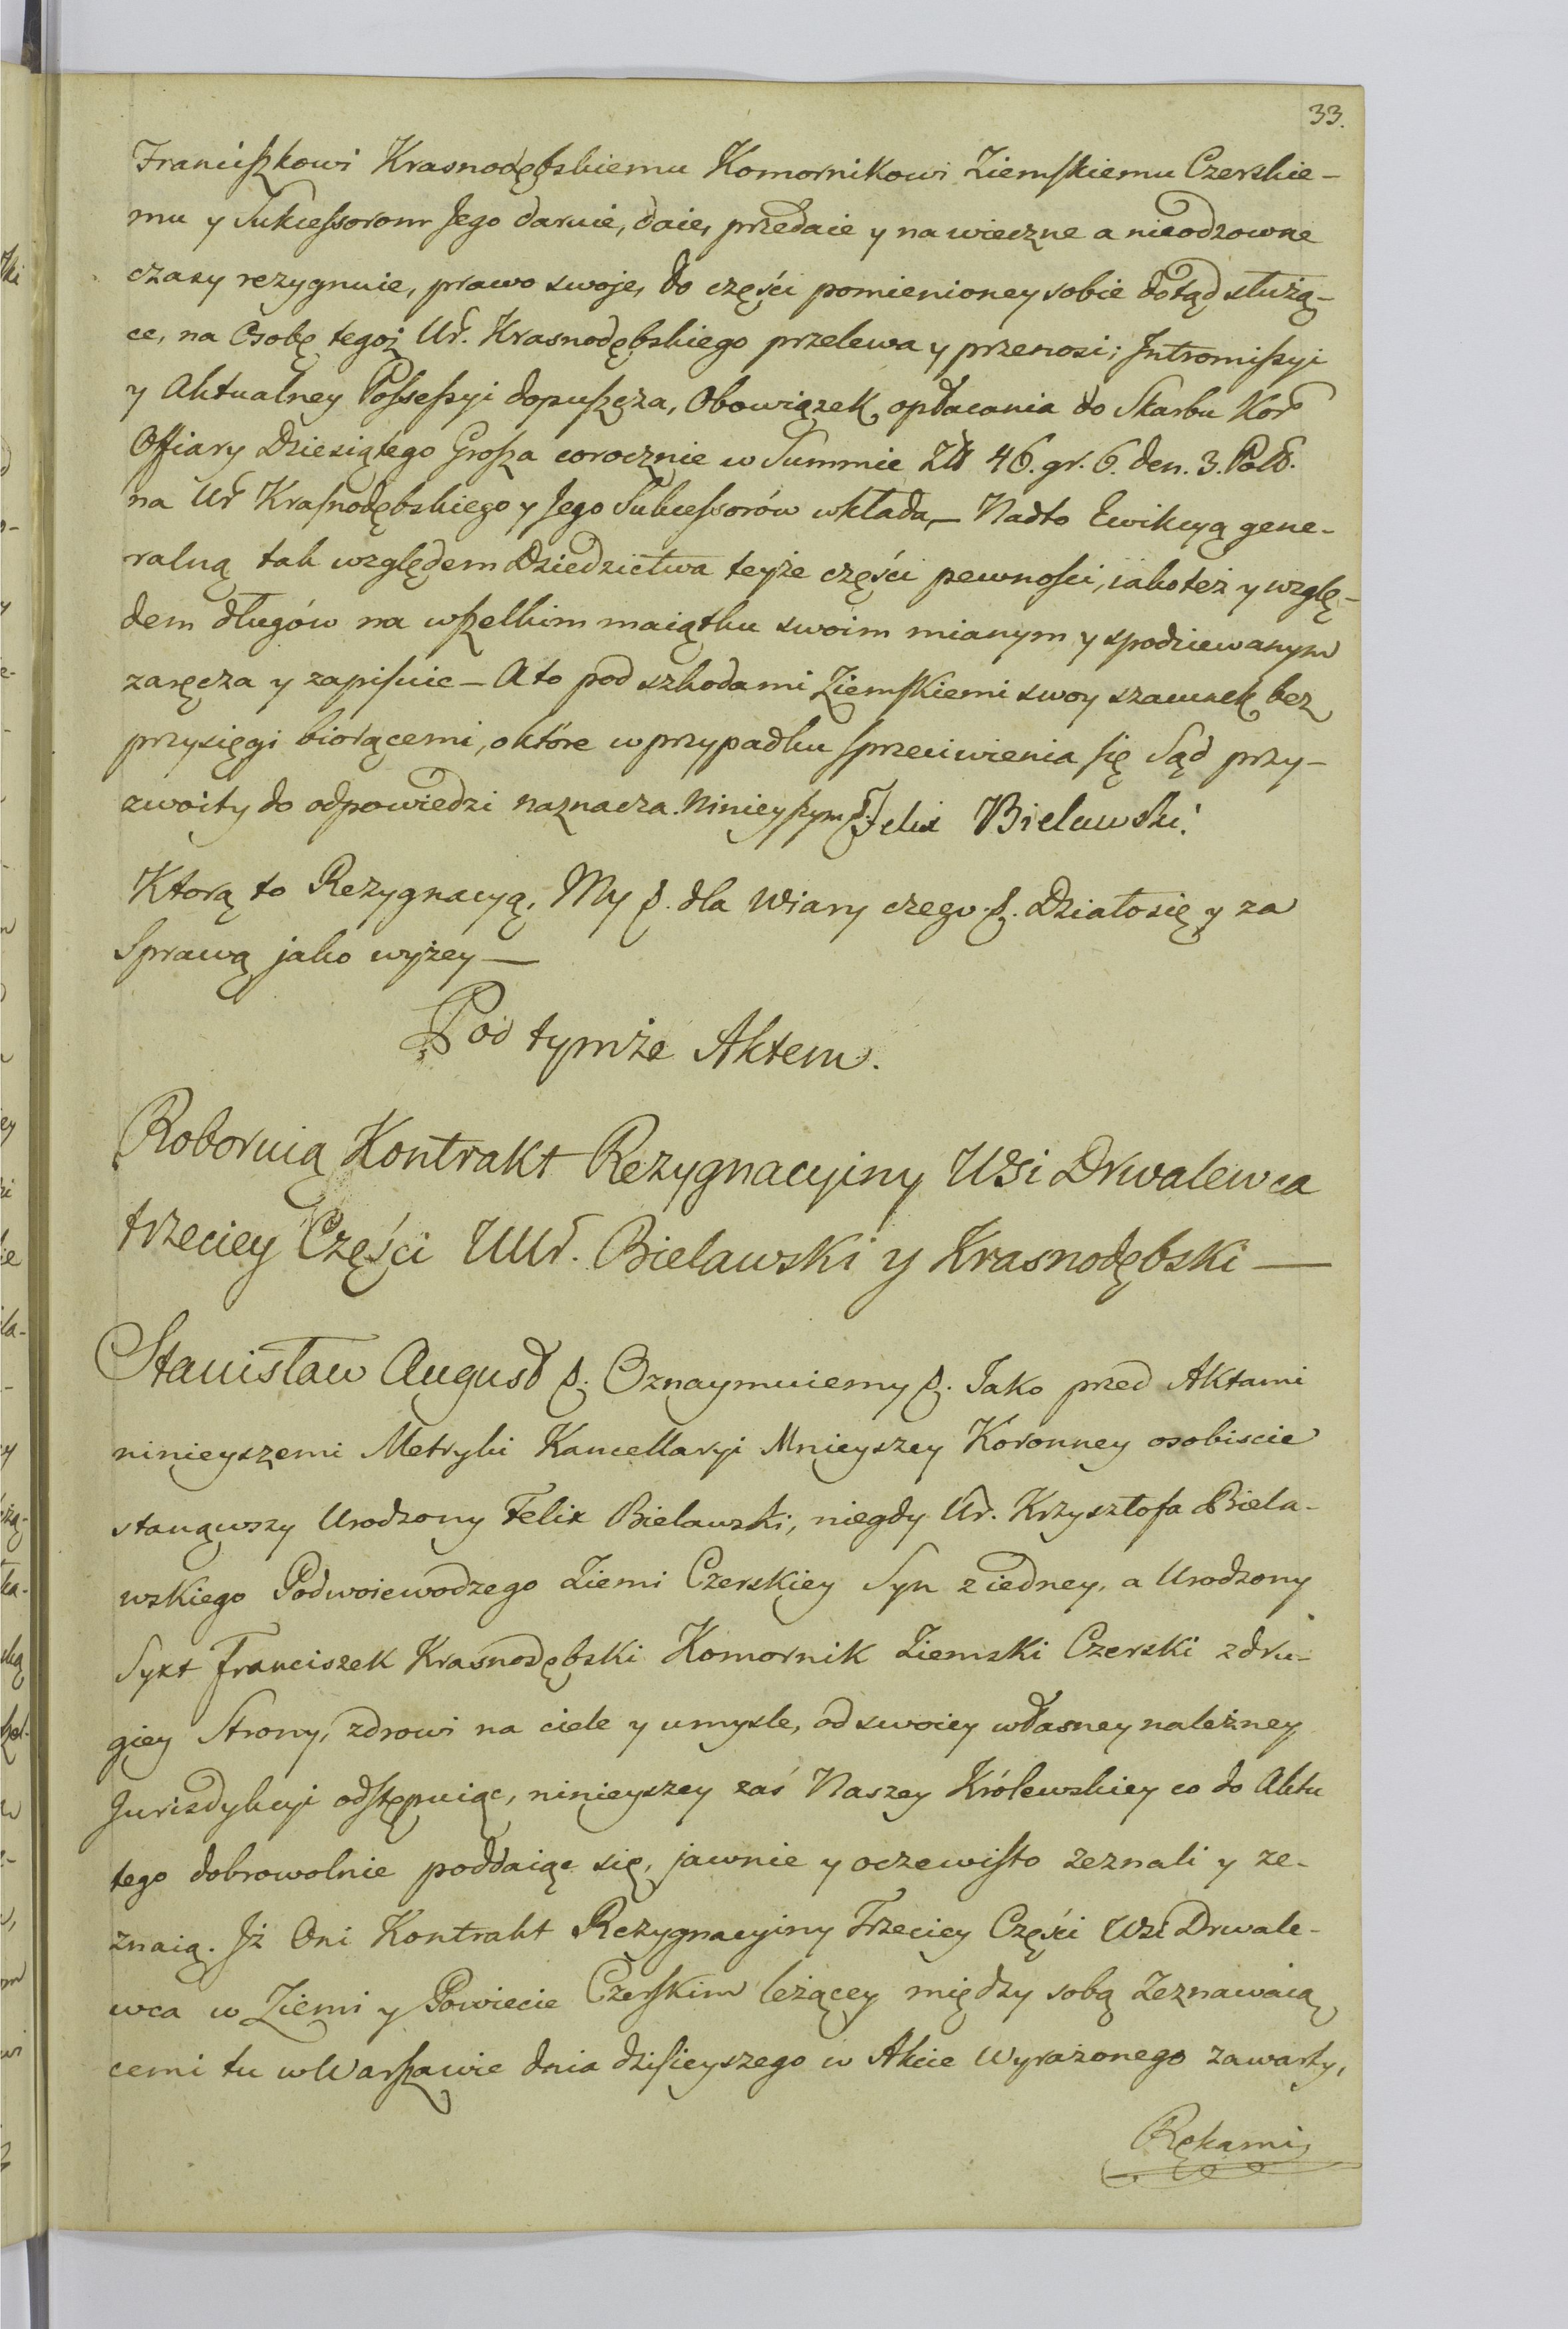 33.
Franciszkowi Krasnodębskiemu Komornikowi Ziemskiemu Czerskie-
mu y Sukcessorom Jego daruie, daie, przedaie y na wieczne a nieodzowne
czasy rezygnuie, prawo swoje, do części pomienioney sobie dotąd służą-
ce, na Osobę tegoż Ur. Krasnodębskiego przelewa y przenosi; Intromissyi
y Aktualney Possessyi dopuszcza, Obowiązek opłacania do Skarbu Kor
Offiary Dziesiątego Grosza corocznie w Summie Zł 46. gr. 6. den. 3. Pol.
na Ur Krasnodębskiego y Jego Sukcessorów wkłada, — Nadto Ewikcyą gene-
ralną tak względem Dziedzictwa teyże części pewności, iako też y wzglę-
dem długów na wszelkim maiątku swoim mianym y spodziewanym
zaręcza y zapisuie — A to pod szkodami Ziemskiemi swoy szacunek bez
przysięgi biorącemi, o które w przypadku sprzeciwienia się Sąd przy-
zwoity do odpowiedzi naznacza. Ninieyszym Felix Bielawski.
Ktorą to Rezygnacyą, My &. dla Wiary czego &. Działo się y za
Sprawą jako wyżey —
Pod tymże Aktem.
Roboruią Kontrakt Rezygnacyiny Wsi Drwalewca
trzeciey Części UUr. Bielawski y Krasnodębski —
Stanisław August &. Oznaymuiemy &. Jako przed Aktami
ninieyszemi Metryki Kancellaryi Mnieyszey Koronney osobiscie
stanąwszy Urodzony Felix Bielawski, niegdy Ur. Krzysztofa Biela-
wskiego Podwoiewodzego Ziemi Czerskiey Syn z iedney, a Urodzony
Syxt Franciszek Krasnodębski Komornik Ziemski Czerski z dru-
giey Strony, zdrowi na ciele y umysle, od swoiey własney należney
Jurisdykcyi odstępuiąc, ninieyszey zaś Naszey Królewskiey co do Aktu
tego dobrowolnie poddaiąc się, jawnie y oczewisto zeznali y ze-
znaią. Iż Oni Kontrakt Rezygnacyiny Trzeciey Części Wsi Drwale-
wca w Ziemi y Powiecie Czerskim leżącey między sobą Zeznawaią
cemi tu w Warszawie dnia dzisieyszego w Akcie Wyrażonego zawarty,
Rękami